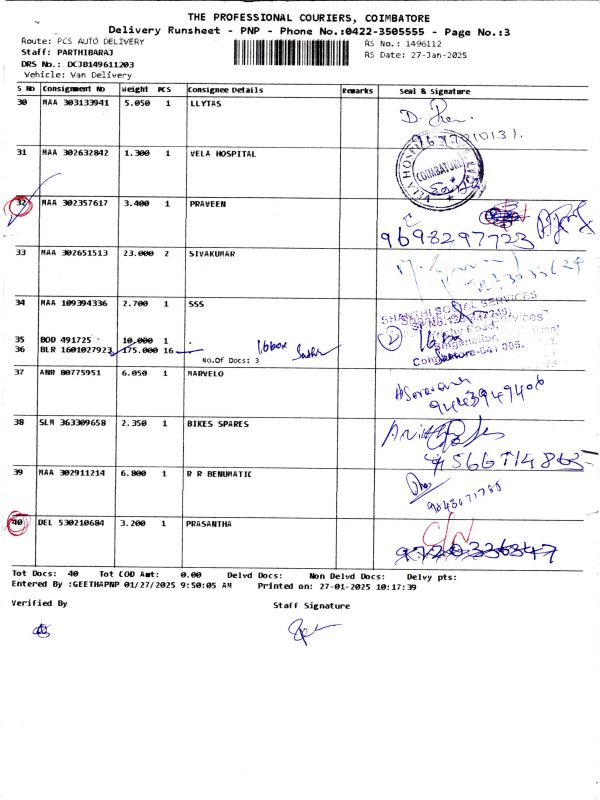 THE PROFESSIONAL COURIERS, COIMBATORE
Delivery Runsheet - PNP - Phone No.:0422-3505555 - Page No.:3
Route: PCS AUTO DELIVERY
RS No.: 1496112
Staff: PARTHIBARAJ
RS Date: 27-Jan-2025
DRS No.: DCJB149611203
Vehicle: Van Delivery
S No Consignment No Weight PCS Consignee Details Remarks Seal & Signature
30 MAA 303133941 5.050 1 LLYTAS
31 MAA 302632842 1.300 1 VELA HOSPITAL
VELA HOSPITAL
COIMBATORE
32 MAA 302357617 3.400 1 PRAVEEN
9698297723
33 MAA 302651513 23.000 2 SIVAKUMAR
34 MAA 109394336 2.700 1 SSS
SHANTHI SOCIAL SERVICES
35 BOD 491725 10.000 1
36 BLR 1601027923 175.000 16
16 box
No.Of Docs: 3
2
Coimbatore-641 005.
37 ANR 80775951 6.050 1 MARVELO
9443949406
38 SLM 363309658 2.350 1 BIKES SPARES
39 MAA 302911214 6.800 1 R R BENUMATIC
40 DEL 530210684 3.200 1 PRASANTHA
C/N
Tot Docs: 40 Tot COD Amt: 0.00 Delvd Docs: Non Delvd Docs: Delvy pts:
Entered By :GEETHAPNP 01/27/2025 9:50:05 AM Printed on: 27-01-2025 10:17:39
Verified By
Staff Signature